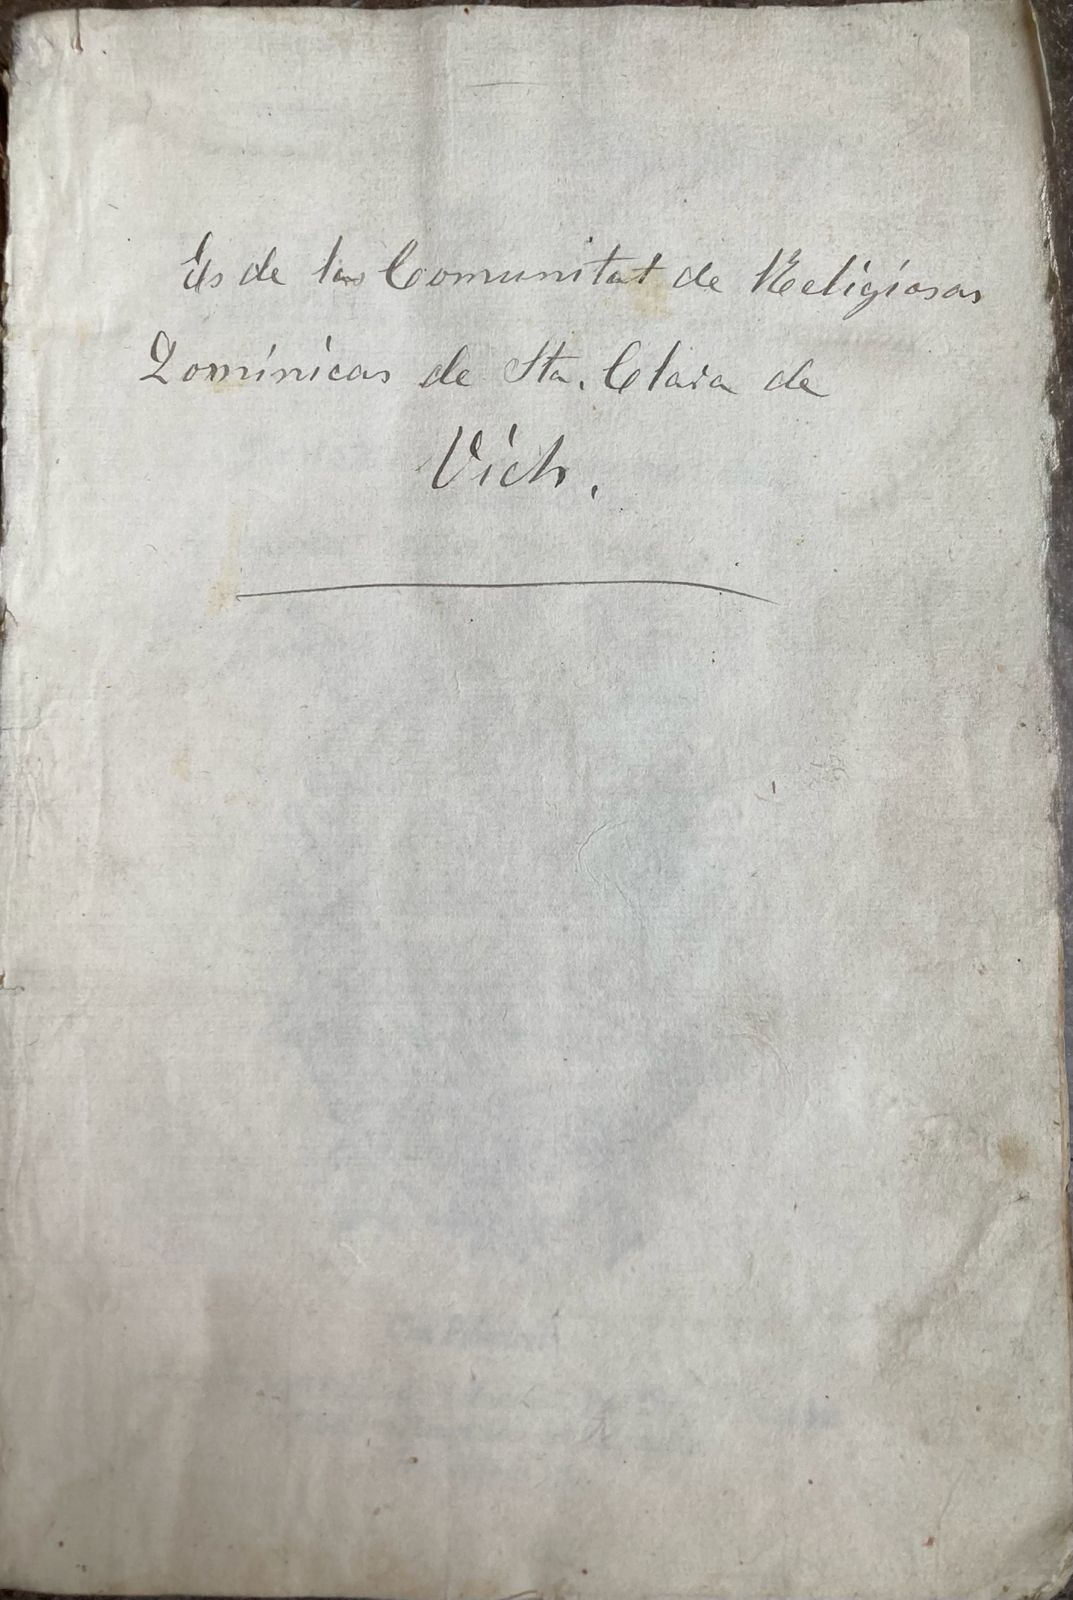 Es de la Comunitat de Religiosas
Dominicas de Sta. Clara de
Vich.